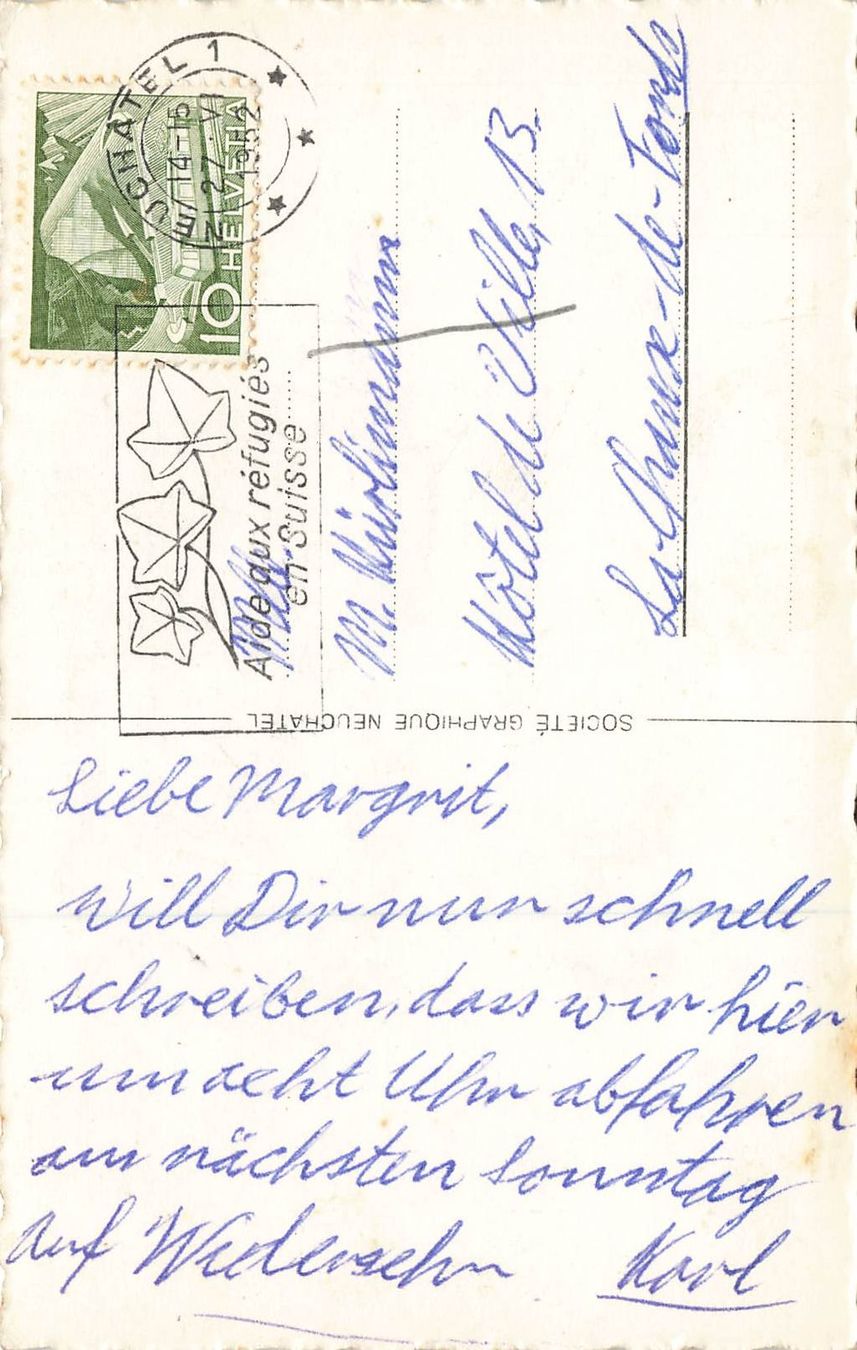 NEUCHATEL 1
14-15
27 VI
1952
10 HELVETIA
Aide aux réfugiés
en Suisse
Mlle
M. Kürlimann
Hôtel de Ville, 13.
La Chaux-de-Fonds
SOCIÉTÉ GRAPHIQUE NEUCHATEL
Liebe Margrit,
will Dir nur schnell
schreiben, dass wir hier
um acht Uhr abfahren
am nächsten Sonntag
Auf Wiedersehn Karl